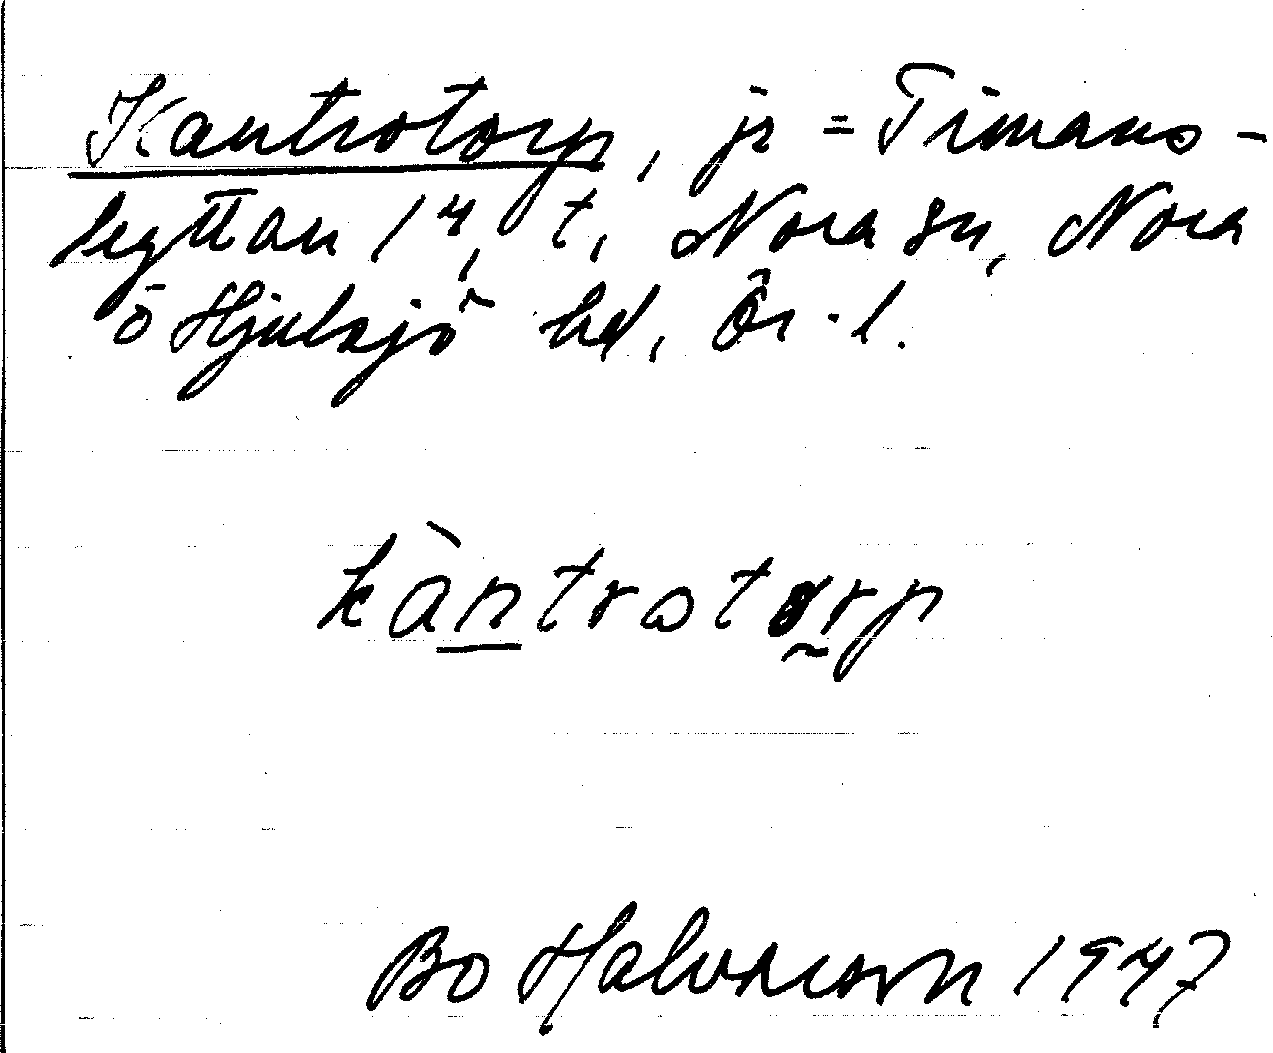 Kantrotorp, jr = Timans-
hyttan 1⁴, t, Nora sn, Nora
o Hjulsjö bd, Ör. l.
kàntrotorp
Bo Halvarson 1947